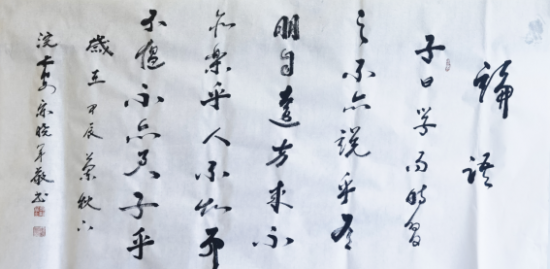 論語
子曰學而時習
之不亦說乎有
朋自遠方來不
亦樂乎人不知而
不慍不亦君子乎
歲在甲辰